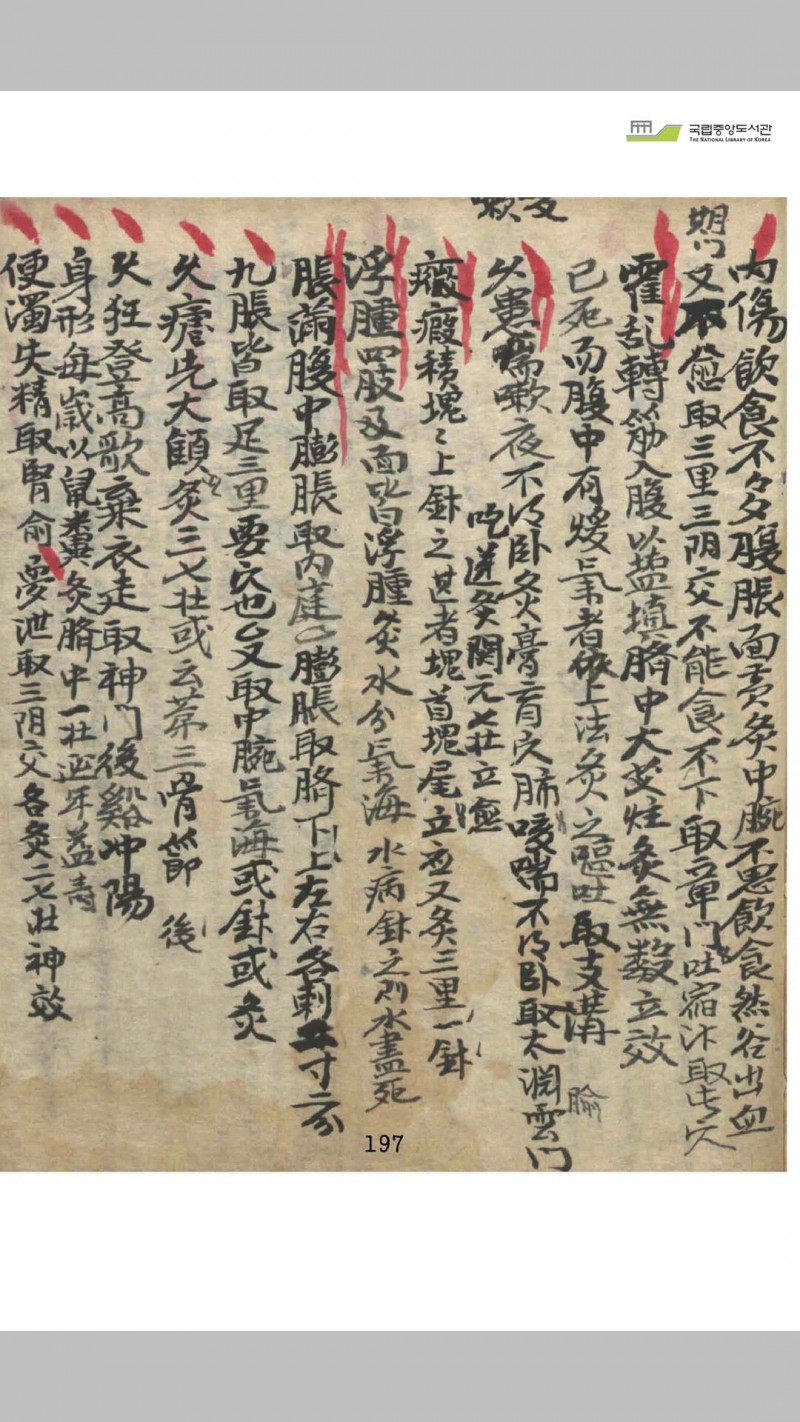 국립중앙도서관
THE NATIONAL LIBRARY OF KOREA
內傷飮食不多夕腹脹面黃灸中腕不思飮食然谷出血
期門又不愈取三里三阴交不能食不下取章門吐宿汁取
霍乱轉筋入腹以塩塡臍中大艾炷灸無数立效
已死而腹中有煖氣者依上法灸之嘔吐取支溝
久患喘嗽夜不得卧灸膏肓穴肺咳喘不得卧取太渊雲門
吃逆灸関元七壮立愈
癥瘕積塊〻上針之甚者塊首塊尾立应又灸三里一針
浮腫四肢及面皆浮腫灸水分氣海 水病針之則水盡死
脹滿腹中膨脹取內庭 膨脹取臍下上左右各刺二寸二分
九脹皆取足三里要穴也 又取中腕氣海或針或灸
久瘧先大顀灸三七壮或云苐三骨節
久狂登高歌棄衣走取神门後谿冲陽
身形每歲以鼠糞灸臍中一壮延年益壽
便濁失精取腎俞夢泄取三阴交各灸二七壮神效
197